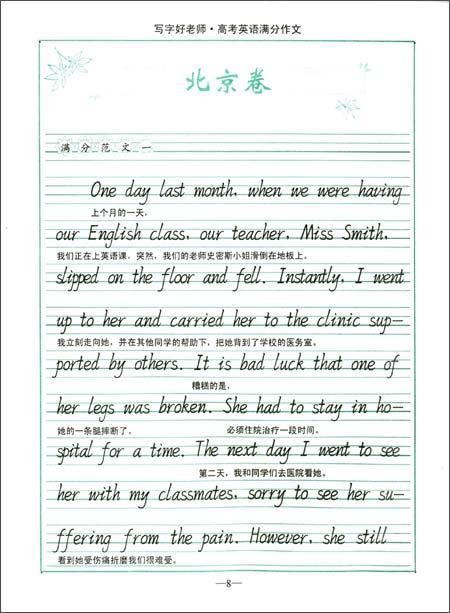 写字好老师·高考英语满分作文
北京卷
满分范文一
One day last month, when we were having
上个月的一天,
our English class, our teacher, Miss Smith,
我们正在上英语课,突然,我们的老师史密斯小姐滑倒在地板上。
slipped on the floor and fell. Instantly, I went
up to her and carried her to the clinic sup-
我立刻走向她,并在其他同学的帮助下,把她背到了学校的医务室。
ported by others. It is bad luck that one of
糟糕的是,
her legs was broken. She had to stay in ho-
她的一条腿摔断了。 必须住院治疗一段时间。
spital for a time. The next day I went to see
第二天,我和同学们去医院看她。
her with my classmates, sorry to see her su-
ffering from the pain. However, she still
看到她受伤痛折磨我们很难受。
—8—